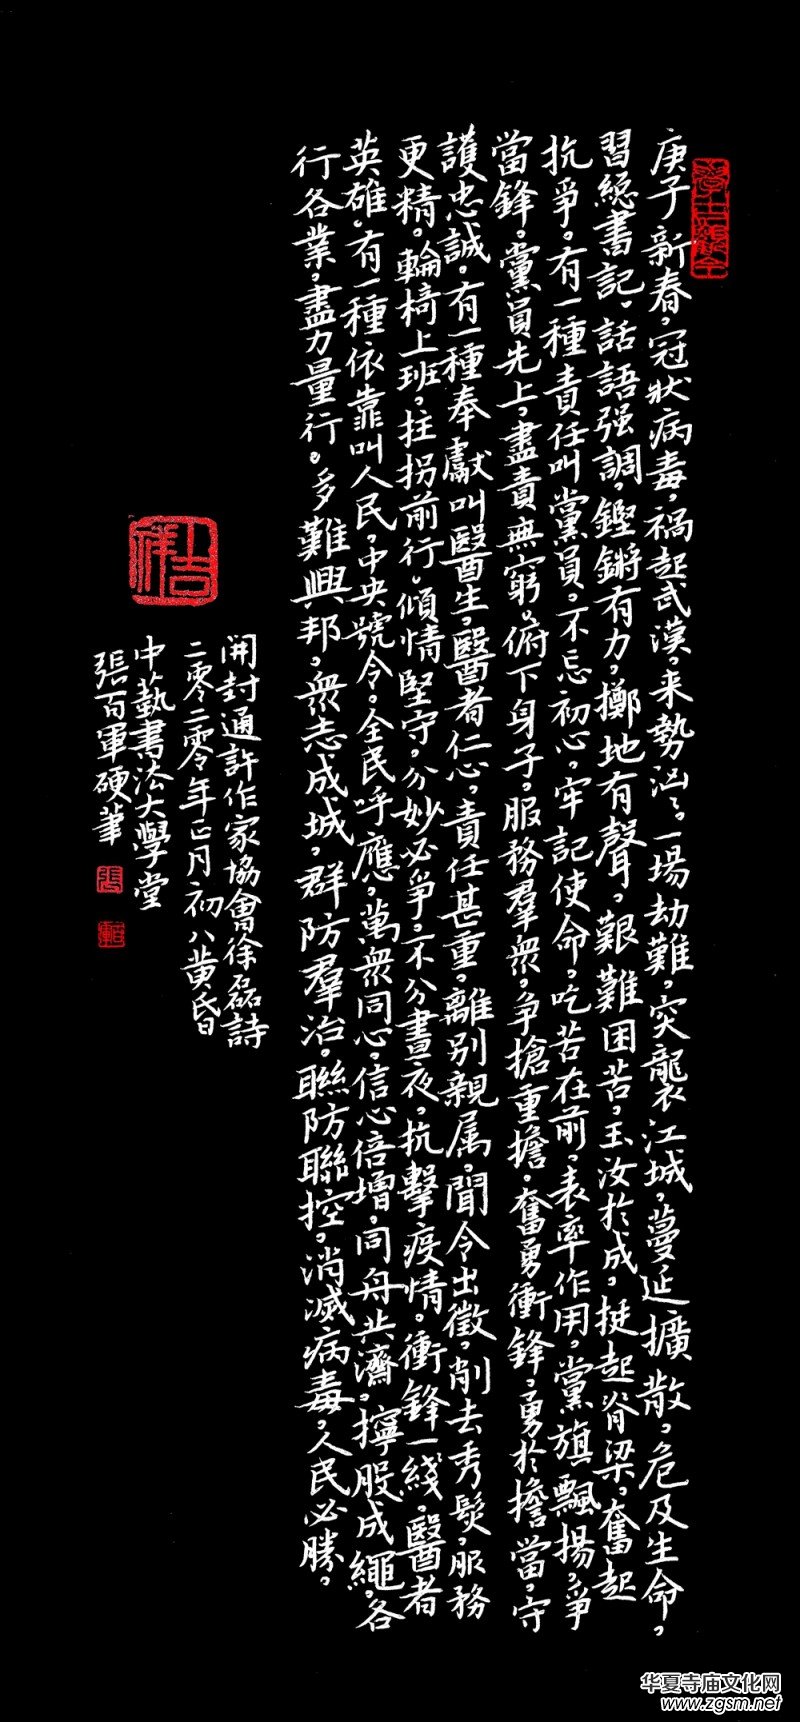 庚子新春，冠狀病毒，禍起武漢，来勢汹汹。一場劫難，突襲江城，蔓延擴散，危及生命，
習總書記，話語强調，鏗鏘有力，擲地有聲，艱難困苦，玉汝於成，挺起脊梁，奮起
抗爭。有一種責任叫黨員，不忘初心，牢記使命，吃苦在前，表率作用，黨旗飄揚，爭
當鋒。黨員先上，盡責無窮。俯下身子，服務羣衆，争搶重擔，奮勇衝鋒，勇於擔當，守
護忠誠。有一種奉獻叫醫生，醫者仁心，責任甚重，離别親属，聞令出徵，削去秀髮，服務
更精。輪椅上班，拄拐前行。傾情堅守，分妙必爭，不分晝夜，抗擊疫情。衝鋒一綫，醫者
英雄。有一種依靠叫人民，中央號令。全民呼應，萬衆同心，信心倍增，同舟共濟，擰股成繩，各
行各業，盡力量行。多難興邦，衆志成城，群防羣治，聯防聯控，消滅病毒，人民必勝。
開封通許作家協會徐磊詩
二零二零年正月初八黄昏
中藝書法大學堂
張百軍硬筆
吉祥
張
华夏寺庙文化网
www.zgsm.net